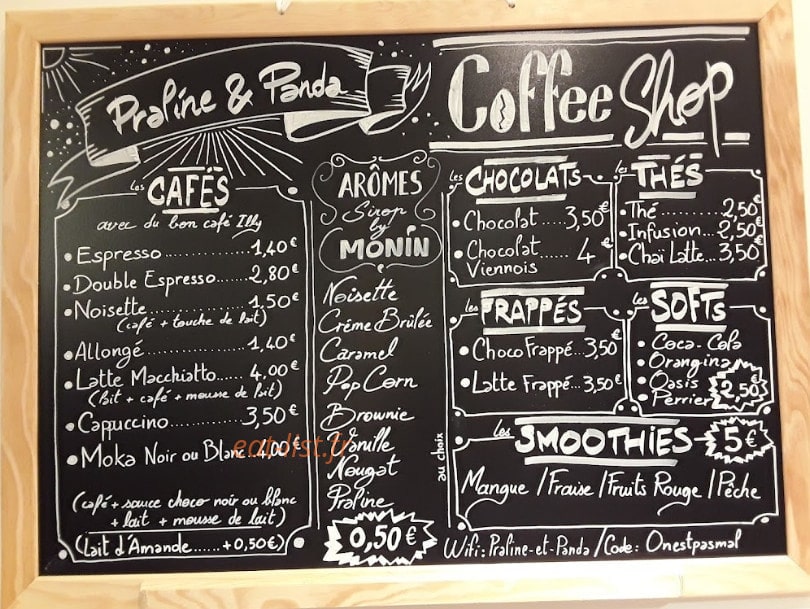 Praline & Panda
Coffee Shop
les CAFÉS
avec du bon café Illy
• Espresso...............1,40€
• Double Espresso......2,80€
• Noisette...............1,50€
(café + touche de lait)
• Allongé................1,40€
• Latte Macchiatto.....4.00€
(lait + café + mousse de lait)
• Cappuccino..........3,50€
• Moka Noir ou Blanc 4,00€
(café + sauce choco noir ou blanc
+ lait + mousse de lait)
(Lait d'Amande......+0,50€)
ARÔMES
Sirop
by
MONIN
Noisette
Crème Brûlée
Caramel
Pop Corn
Brownie
Vanille
Nougat
Praline
0,50€
au choix
les CHOCOLATS
• Chocolat.....3,50€
• Chocolat.....4€
Viennois
les THÉS
• Thé.........2,50€
• Infusion...2,50€
• Chaï Latte..3,50€
les FRAPPÉS
• Choco Frappé...3,50€
• Latte Frappé...3,50€
les SOFTS
• Coca-Cola
• Orangina
• Oasis
• Perrier
2,50€
les SMOOTHIES 5€
Mangue / Fraise / Fruits Rouge / Pêche
Wifi: Praline-et-Panda / Code: Onestpasmal
eat-list.fr